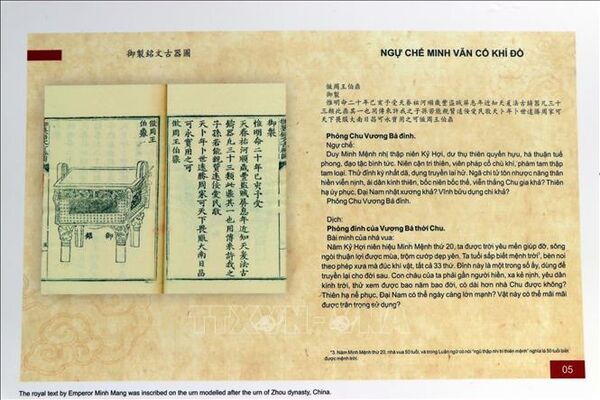 御製銘文古器圖
倣周王
伯鼎
御銘
御製
惟明命二十年己亥予受
天眷祐河順歲豐盜賊屏息年近知天爰法古
鑄器凡三十三類此鼎其一也用傳來許我之
子孫若能親賢遠佞愛民敬
天卜年卜世遠勝周家可天下畏服大南日昌
可永寶用之可
倣周王伯鼎
NGỰ CHẾ MINH VĂN CỔ KHÍ ĐỒ
倣周王伯鼎
御製
惟明命二十年己亥予受天眷祐河順歲豐盜賊屏息年近知天爰法古鑄器凡三十
三類此鼎其一也用傳來許我之子孫若能親賢遠佞愛民敬天卜年卜世遠勝周家可
天下畏服大南日昌可永寶用之可倣周王伯鼎
Phỏng Chu Vương Bá đỉnh.
Ngự chế:
Duy Minh Mệnh nhị thập niên Kỷ Hợi, dư thụ thiên quyến hựu, hà thuận tuế
phong, đạo tặc bình tức. Niên cận tri thiên, viên pháp cổ chú khí, phàm tam thập
tam loại. Thử đỉnh kỳ nhất dã, dụng truyền lai hứ. Ngã chi tử tôn nhược năng thân
hiền viễn nịnh, ái dân kính thiên, bốc niên bốc thế, viễn thắng Chu gia khả? Thiên
hạ úy phục, Đại Nam nhật xương khả? Vĩnh bửu dụng chi khả?
Phỏng Chu Vương Bá đỉnh.
Dịch:
Phỏng đỉnh của Vương Bá thời Chu.
Bài minh của nhà vua:
Năm Kỷ Hợi niên hiệu Minh Mệnh thứ 20, ta được trời yêu mến giúp đỡ, sông
ngòi thuận lợi được mùa, trộm cướp dẹp yên. Ta tuổi sắp biết mệnh trời³, bèn noi
theo phép xưa mà đúc khí vật, tất cả 33 thứ. Đỉnh này là một trong số ấy, dùng để
truyền lại cho đời sau. Con cháu của ta phải gần người hiền, xa kẻ nịnh, yêu dân
kính trời, thử xem được bao năm bao đời, có dài hơn nhà Chu được không?
Thiên hạ nể phục, Đại Nam có thể ngày càng lớn mạnh? Vật này có thể mãi mãi
được trân trọng sử dụng?
*3. Năm Minh Mệnh thứ 20, nhà vua 50 tuổi, và trong Luận ngữ có nói "ngũ thập nhi tri thiên mệnh" nghĩa là 50 tuổi biết
được mệnh trời.
05
The royal text by Emperor Minh Mang was inscribed on the urn modelled after the urn of Zhou dynasty, China.